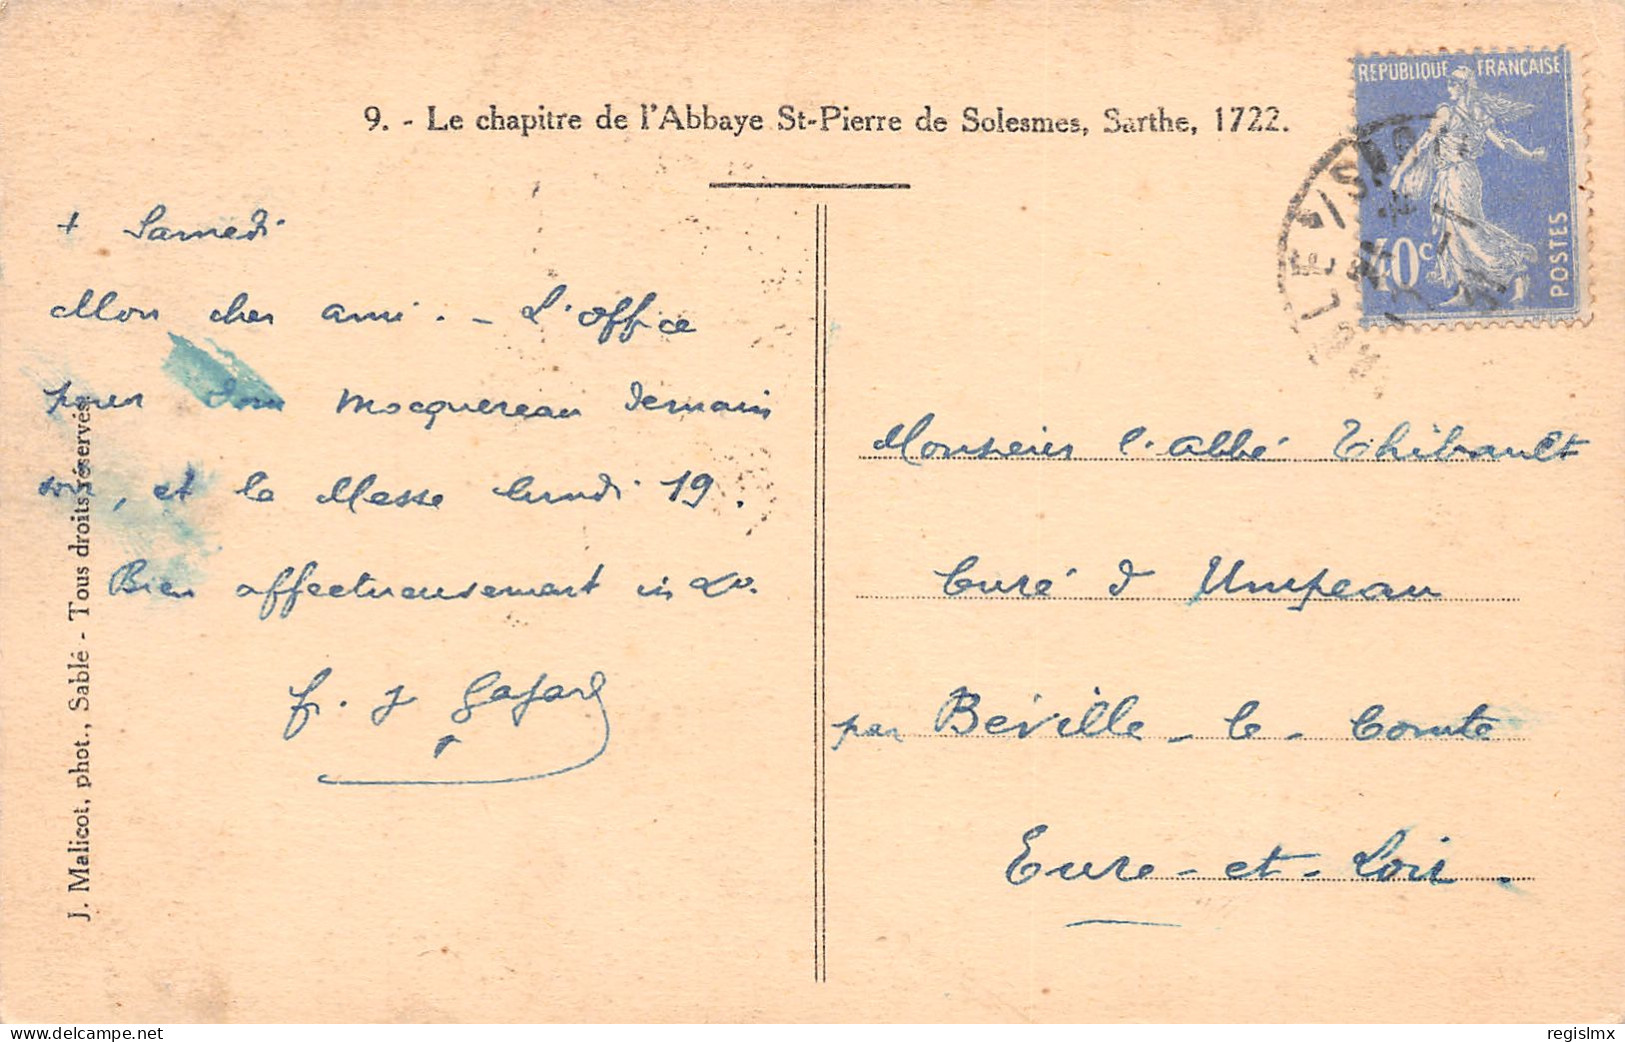 9. - Le chapitre de l'Abbaye St-Pierre de Solesmes, Sarthe, 1722.
REPUBLIQUE FRANÇAISE
40c
POSTES
+ Samedi
Mon cher ami. - L'office
pour Dom Mocquereau demain
soir, et la Messe lundi 19.
Bien affectueusement in Do.
fr. J Gajard
J. Malicot, phot., Sablé - Tous droits réservés.
Monsieur l'abbé Thibault
Curé d'Umpeau
par Béville-le-Comte
Eure-et-Loir.
delcampe.net
regislmx